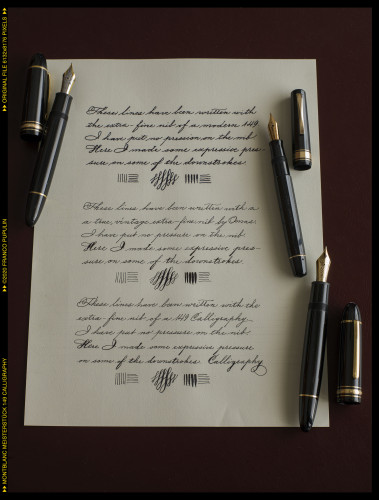 These lines have been written with
the extra-fine nib of a modern 149.
I have put no pression on the nib
Here I made some expressive pres-
sure on some of the downstrokes.
These lines have been written with a
a true, vintage extra-fine nib by Omas.
I have put no pressure on the nib
Here I made some expressive pres-
sure on some of the downstrokes.
These lines have been written with the
extra-fine nib of a 149 Calligraphy
I have put no pressure on the nib.
Here I made some expressive pressure
on some of the downstrokes. Calligraphy
ORIGINAL FILE 6132x8176 PIXELS
©2020 FRANCO PUPULIN
MONTBLANC MEISTERSTÜCK 149 CALLIGRAPHY